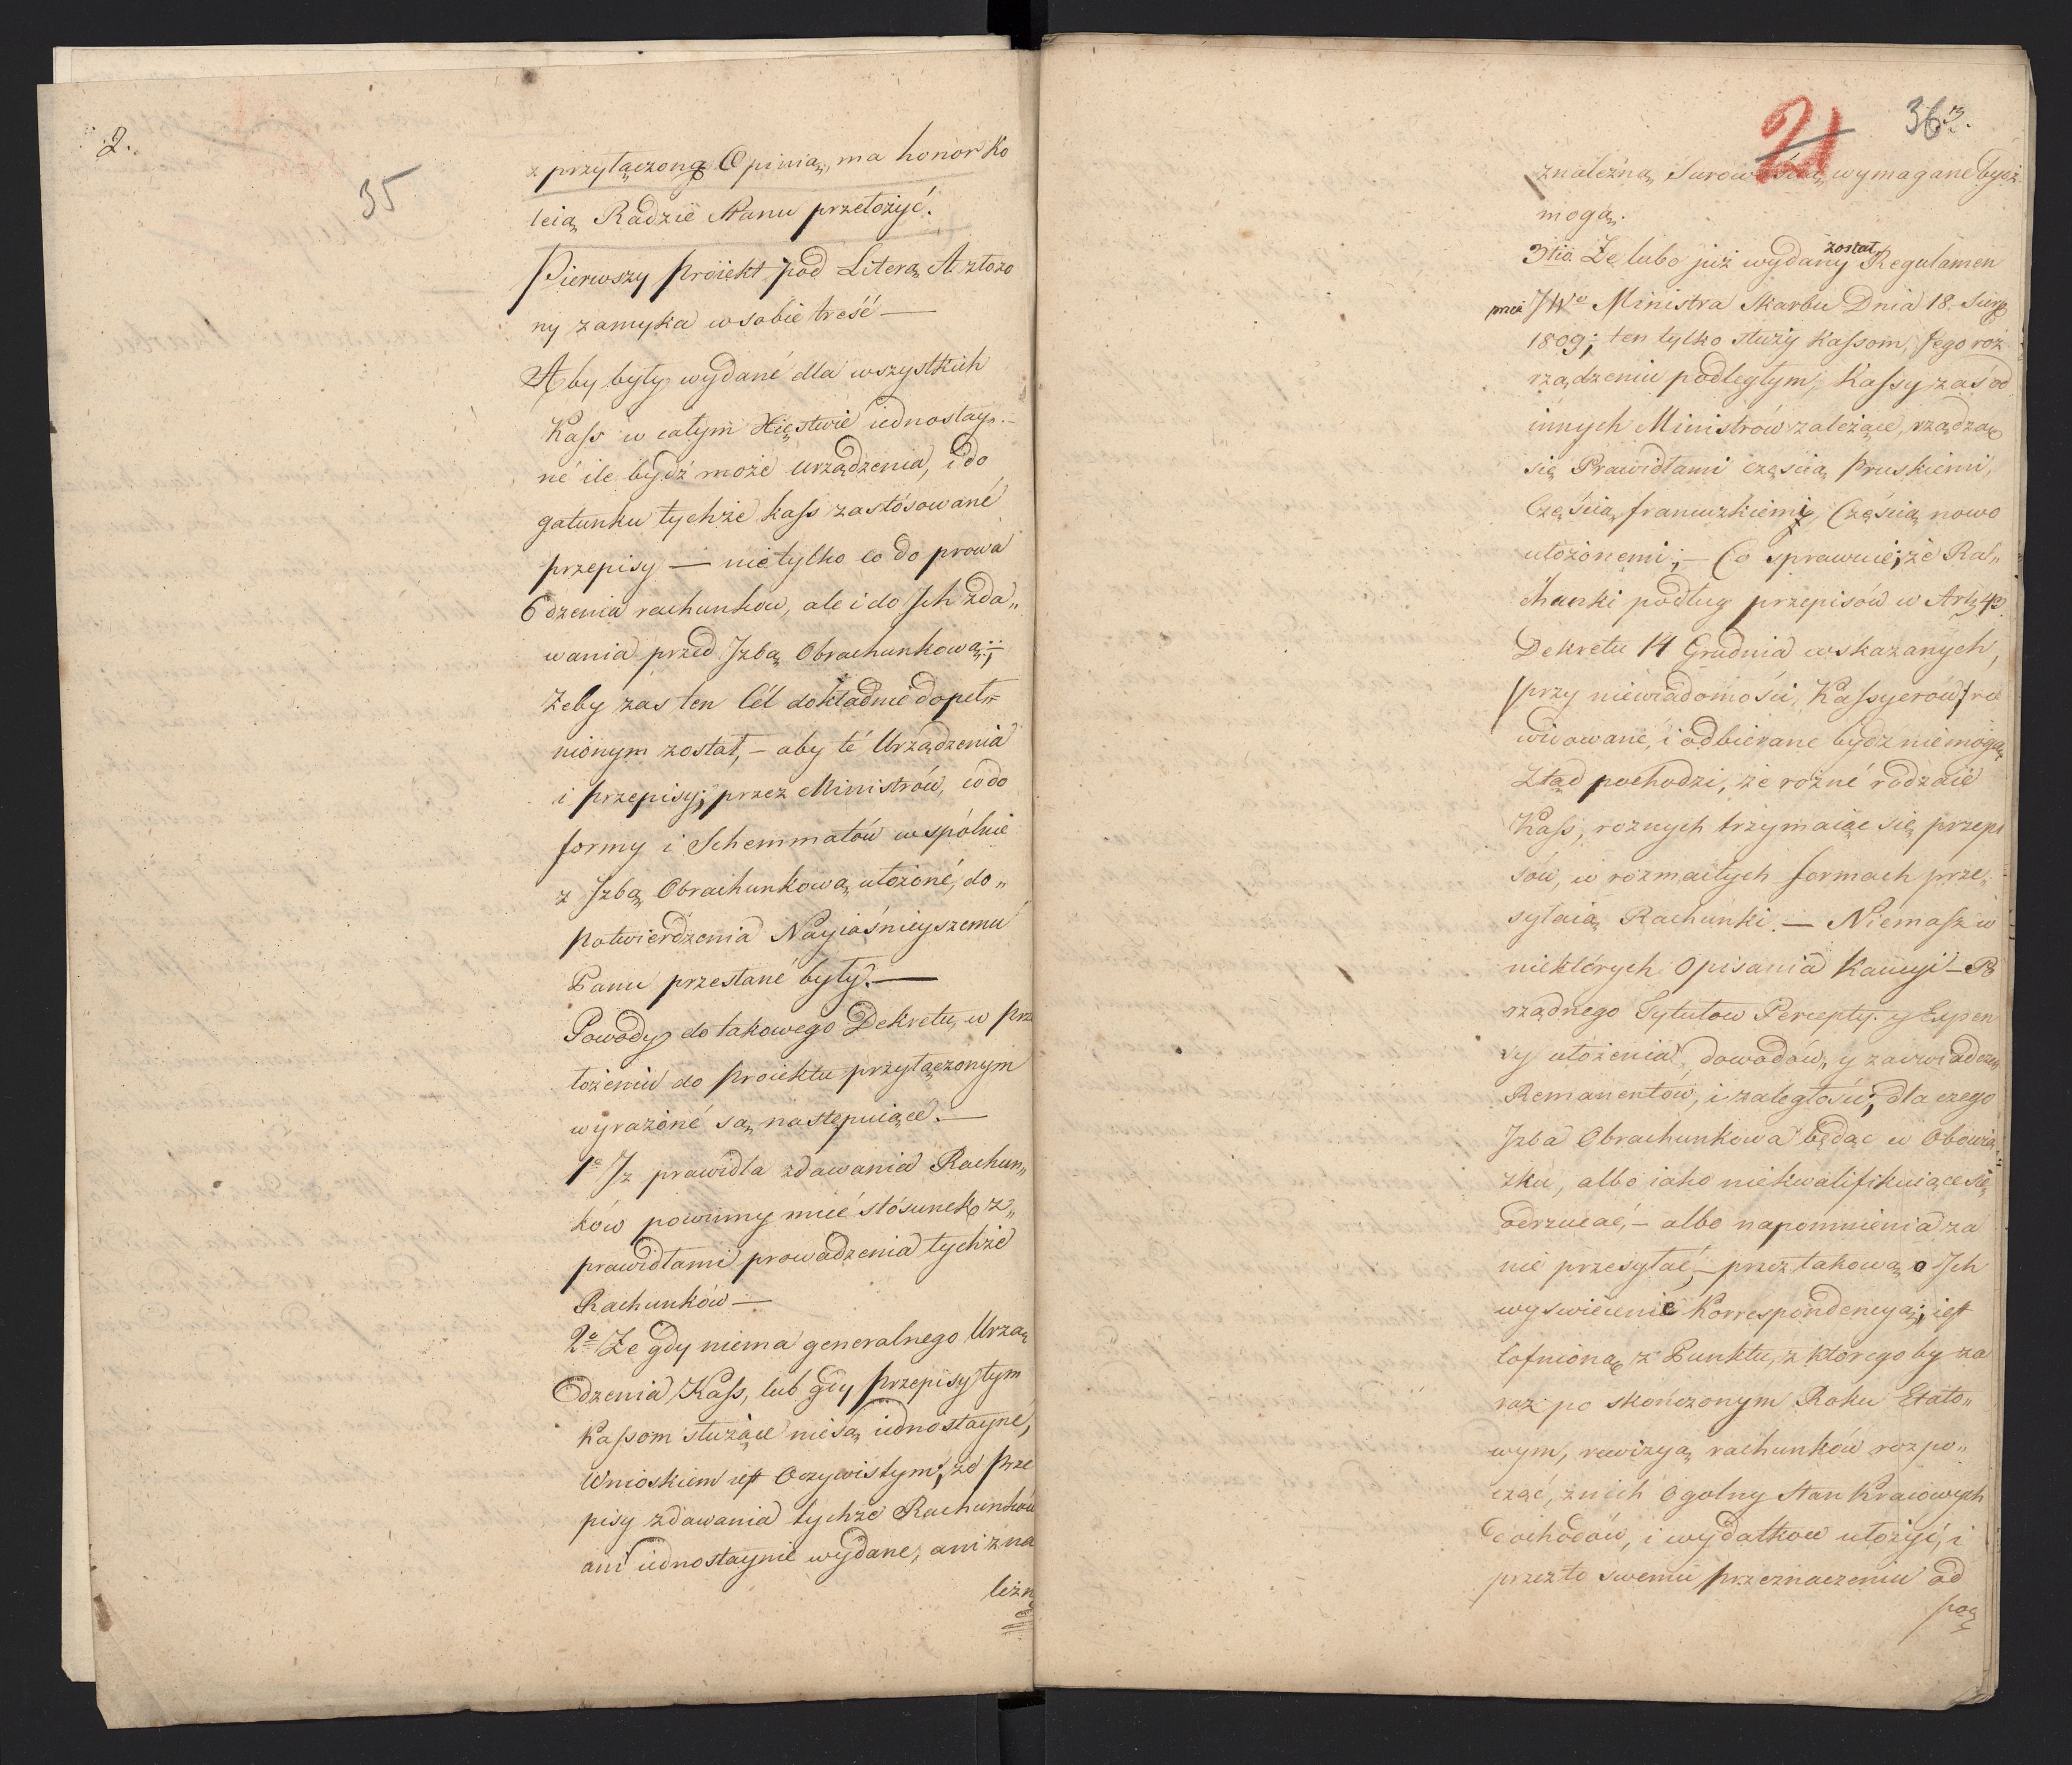 2.
35
z przyłączoną Opinią, ma honor Ko
leią Radzie Stanu przełożyć.
Pierwszy Proiekt pod Literą A. złożo
ny zamyka w sobie treść —
Aby były wydané dla wszystkich
Kass w całym Xięstwie iednostay„
né ile bydź może Urządzenia, i do
gatunku tychże kass zastósowané
przepisy — nie tylko co do prowa
dzenia rachunków, ale i do Ich zda„
wania przed Izbą Obrachunkową;—
Żeby zaś ten Cél dokładnie dopeł„
nionym został, — aby té Urządzenia
i przepisy; przez Ministrów, co do
formy i Schemmatów wspólnie
z Izbą Obrachunkową ułożoné, do„
potwierdzenia Nayiaśnieyszemu
Panu przesłané były. —
Powody do takowego Dekretu, w prze
łożeniu do Proiektu przyłączonym
wyrażoné są, następuiące. —
1o Iż prawidła zdawania Rachun„
ków powinny mieć stósunek z„
prawidłami prowadzenia tychże
Rachunków —
2o Że gdy niema generalnego Urzą
dzenia Kass, lub gdy przepisy tym
Kassom służące nie są iednostayné,
Wnioskiem iest Oczywistym; że prze
pisy zdawania tychże Rachunków
ani iednostaynie wydane, ani z na
leżn
21
36 3.
znależną Surowością wymagane bydź
mogą.
3tio Że lubo już wydany został Regulamen
przez JWo Ministra Skarbu Dnia 18. Sierp
1809; ten tylko służy Kassom, Jego roz
rządzeniu podległym; Kassy zaś od
innych Ministrów zależące, rządzą
się Prawidłami częścią Pruskiemi,
Częścią francuzkiemi, Częścią nowo
ułożonemi; — Co sprawuie; że Ra„
chunki podług przepisów w Art: 43.
Dekretu 14 Grudnia wskazanych,
/przy niewiadomości Kassyerów/ re
widowané, i odbierane bydź niemogą
Ztąd pochodzi, że rożné rodzaie
Kass, roznych trzymaiąc się przepi
sów, w rozmaitych formach prze„
syłaią Rachunki. — Niemasz w
niektórych Opisania Kaucyi — Po
rządnego Tytułow Percepty y Expen
sy ułożenia, dowodów, y zaswiadczeń
Remanentow, i zaległości; dla czego
Izba Obrachunkowa będąc w Obowią
zku, albo iako niekwalifikuiące się
odrzucać, — albo napomnienia za
nie przesyłać, — przez takową o Ich
wyswiecenie Korrespondencyą; iest
cofnioną z Punktu, z ktorego by za
raz po skończonym Roku Etato„
wym, rewizyą rachunków rozpo„
cząć, z nich Ogolny Stan Kraiowych
dochodów, i wydatkow ułożyć, i
przez to swemu przeznaczeniu od
poą